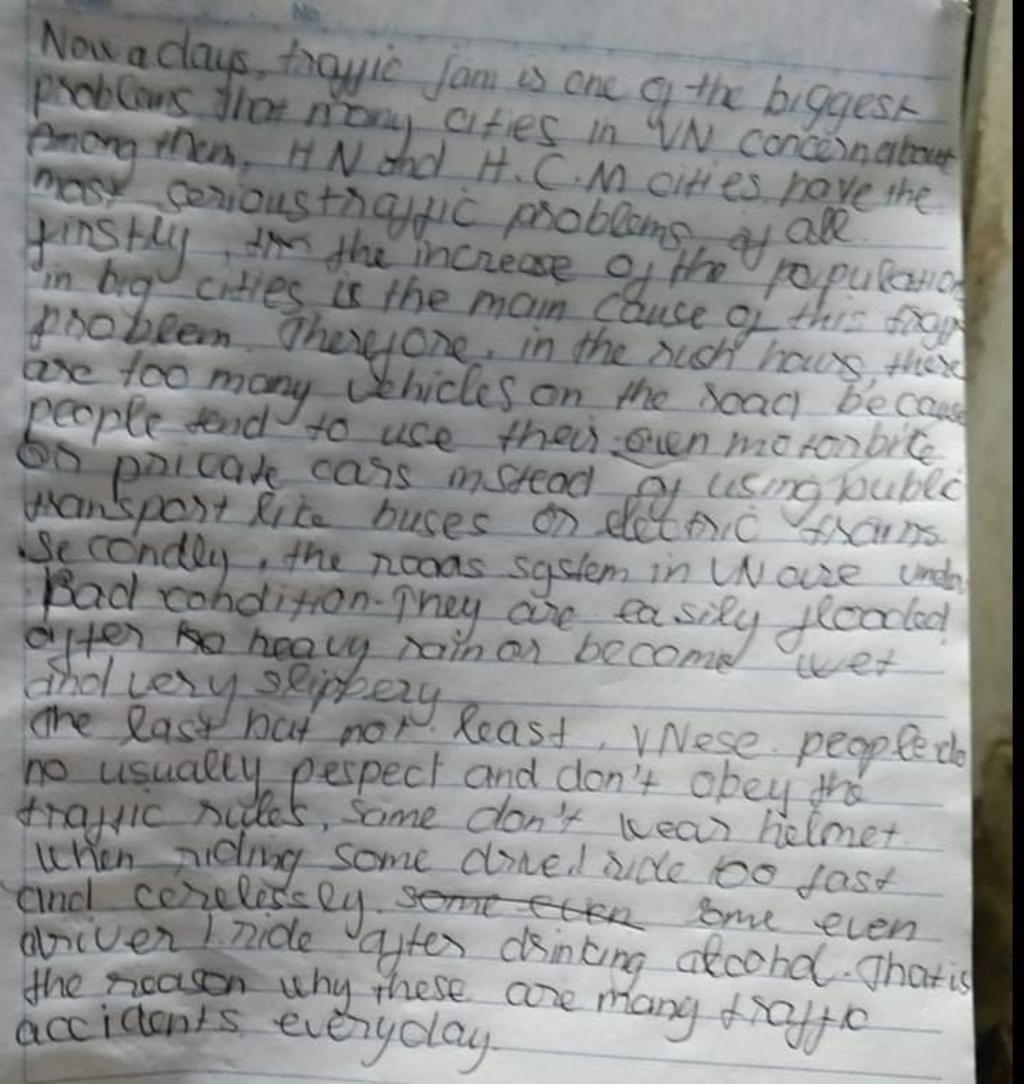 Nowadays, traffic jam is one of the biggest
problems that many cities in VN concern about
Among them, HN and H.C.M cities have the
most serious traffic problems of all.
firstly, the increase of the population
in big cities is the main cause of this
problem. Therefore, in the rush hours, there
are too many vehicles on the road because
people tend to use their own motorbike
or private cars instead of using public
transport like buses or electric trains
Secondly, the roads system in VN are under
Bad condition. They are easily flooded
after heavy rain or become wet
and very slippery
The last but not least, VNese people do
no usually pespect and don't obey the
traffic rules, some don't wear helmet
when riding some drive/ride too fast
and carelessly some even some even
driver/ride after drinking alcohol. That is
the reason why these are many traffic
accidents everyday.